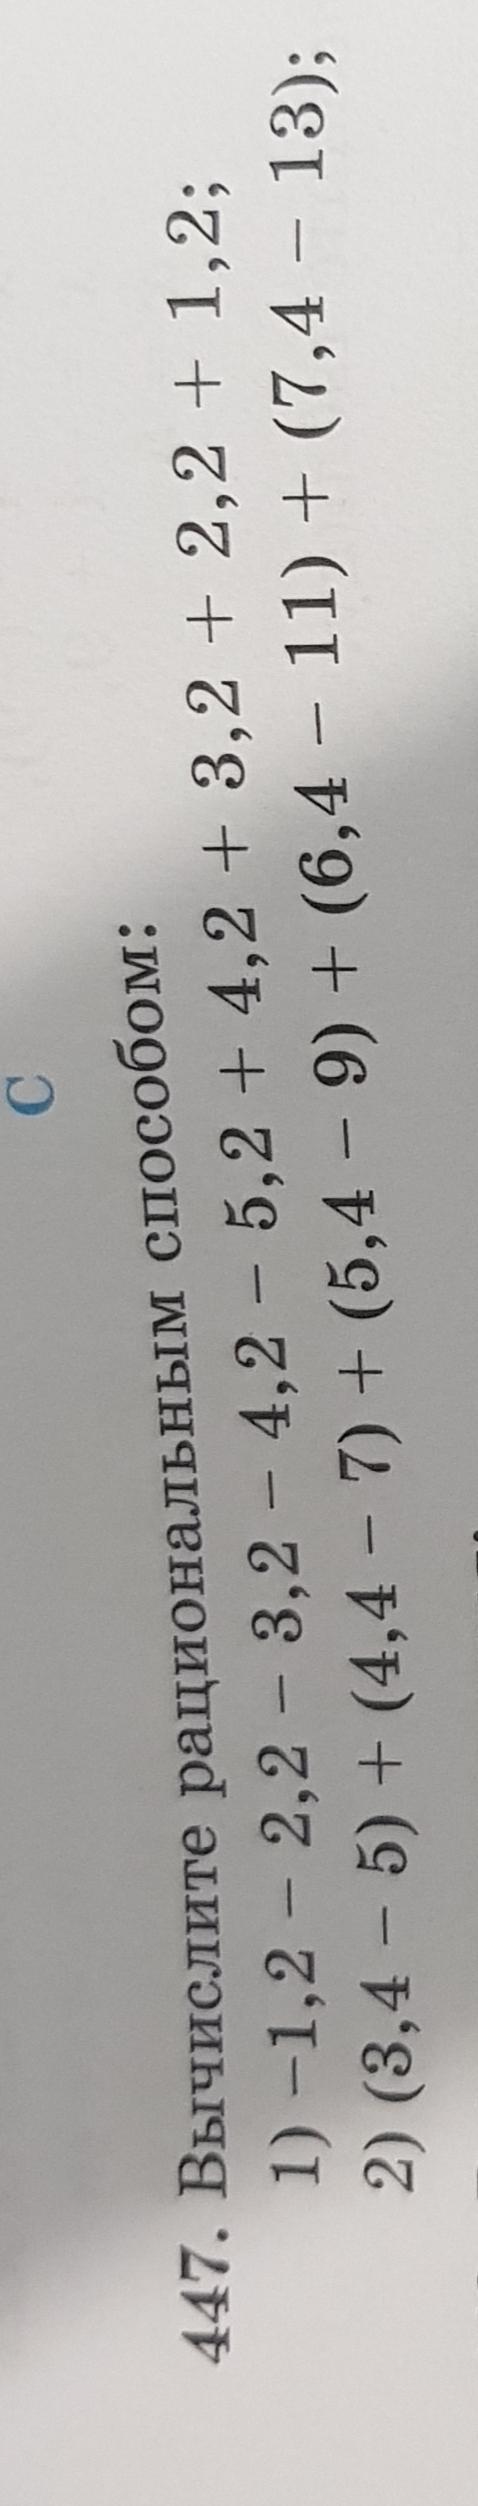 С
447. Вычислите рациональным способом:
1) −1,2 − 2,2 − 3,2 − 4,2 − 5,2 + 4,2 + 3,2 + 2,2 + 1,2;
2) (3,4 − 5) + (4,4 − 7) + (5,4 − 9) + (6,4 − 11) + (7,4 − 13);